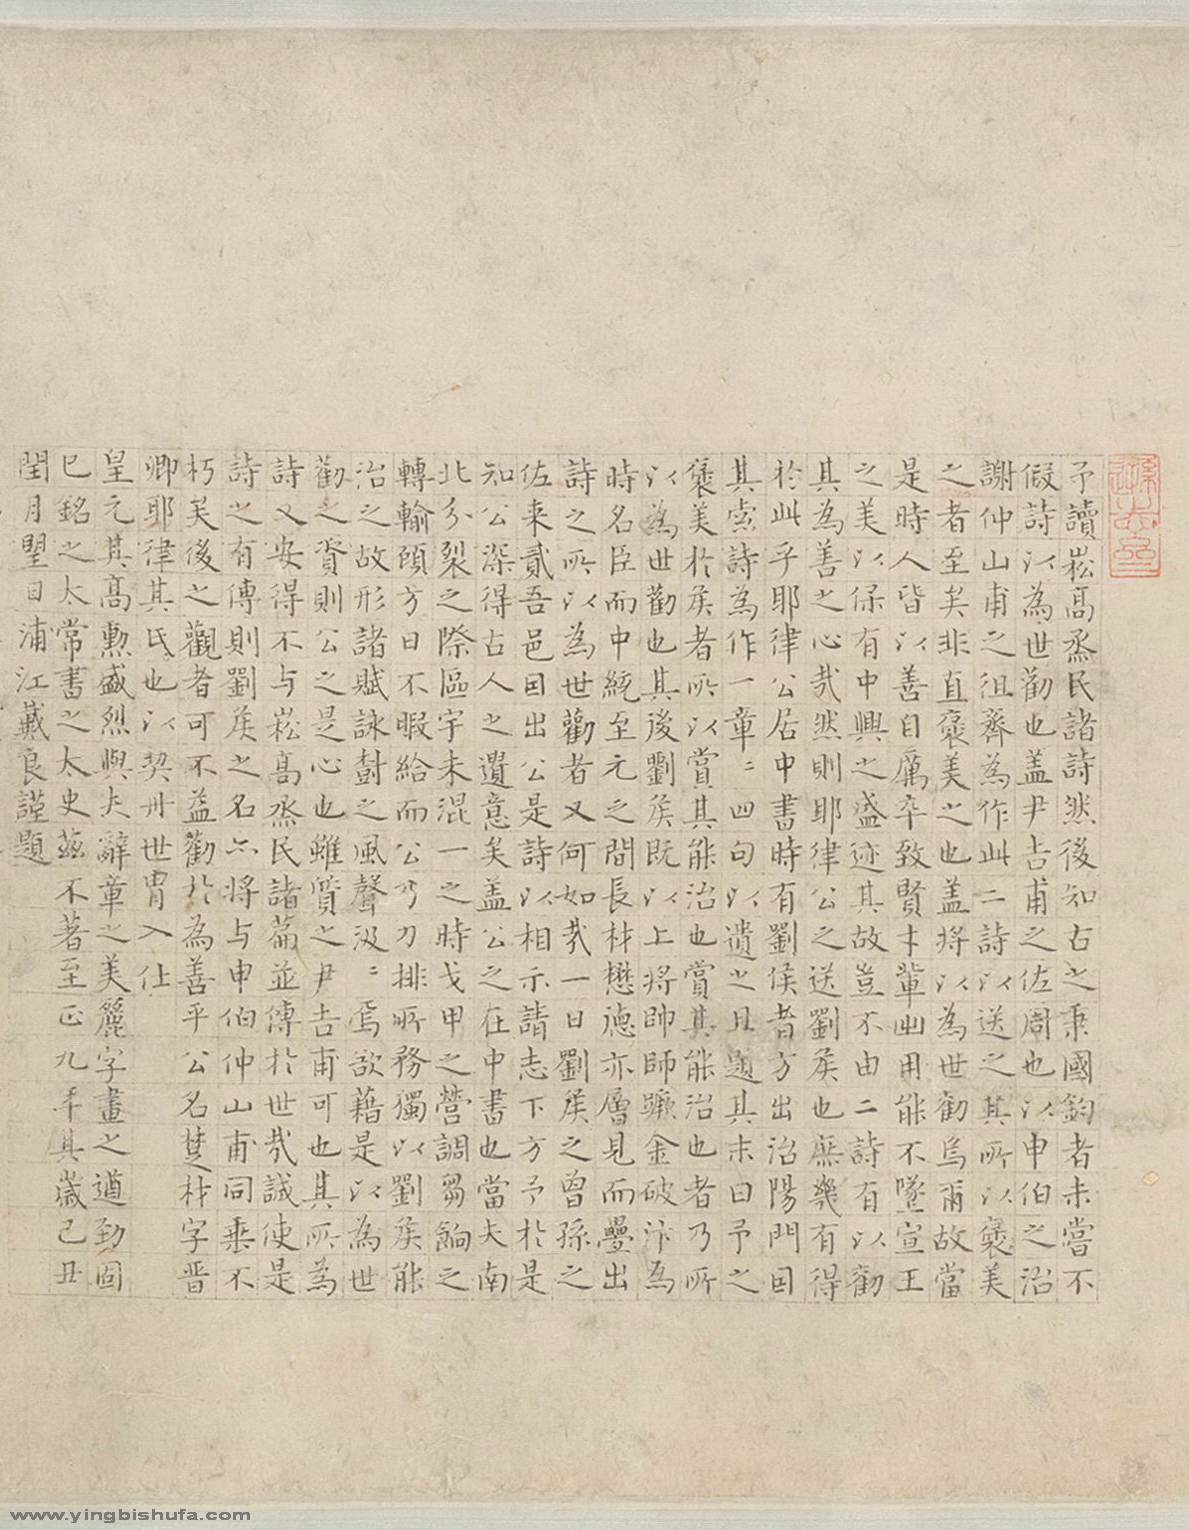 予讀崧高烝民諸詩然後知古之秉國鈞者未嘗不
假詩以為世勸也盖尹吉甫之佐周也以申伯之治
謝仲山甫之徂齊為作此二詩以送之其所以褒美
之者至矣非直褒美之也盖將以為世勸焉爾故當
是時人皆以善自厲卒致賢才輩出用能不墜宣王
之美以保有中興之盛迹其故豈不由二詩有以勸
其為善之心哉然則耶律公之送劉矦也庶幾有得
於此乎耶律公居中書時有劉侯者方出治陽門因
其索詩為作一章〻四句以遺之且題其末曰予之
褒美於矦者所以賞其能治也賞其能治也者乃所
以為世勸也其後劉矦既以上將帥師蹶金破汴為
時名臣而中統至元之間長材懋德亦層見而疊出
詩之所以為世勸者又何如哉一日劉矦之曾孫之
佐来貳吾邑因出公是詩以相示請志下方予於是
知公深得古人之遺意矣盖公之在中書也當夫南
北分裂之際區宇未混一之時戈甲之營調芻餉之
轉輸頤方日不暇給而公乃力排所務獨以劉矦能
治之故形諸賦詠尌之風聲汲〻焉欲藉是以為世
勸之資則公之是心也雖質之尹吉甫可也其所為
詩又安得不与崧高烝民諸篇並傳於世哉誠使是
詩之有傳則劉矦之名亦將与申伯仲山甫同垂不
朽矣後之觀者可不益勸於為善乎公名楚材字晋
卿耶律其氏也以契丹世胄入仕
皇元其高勲盛烈與夫辭章之美麗字畫之遒勁固
已銘之太常書之太史茲不著至正九年其歲己丑
閏月朢日浦江戴良謹題
www.yingbishufa.com